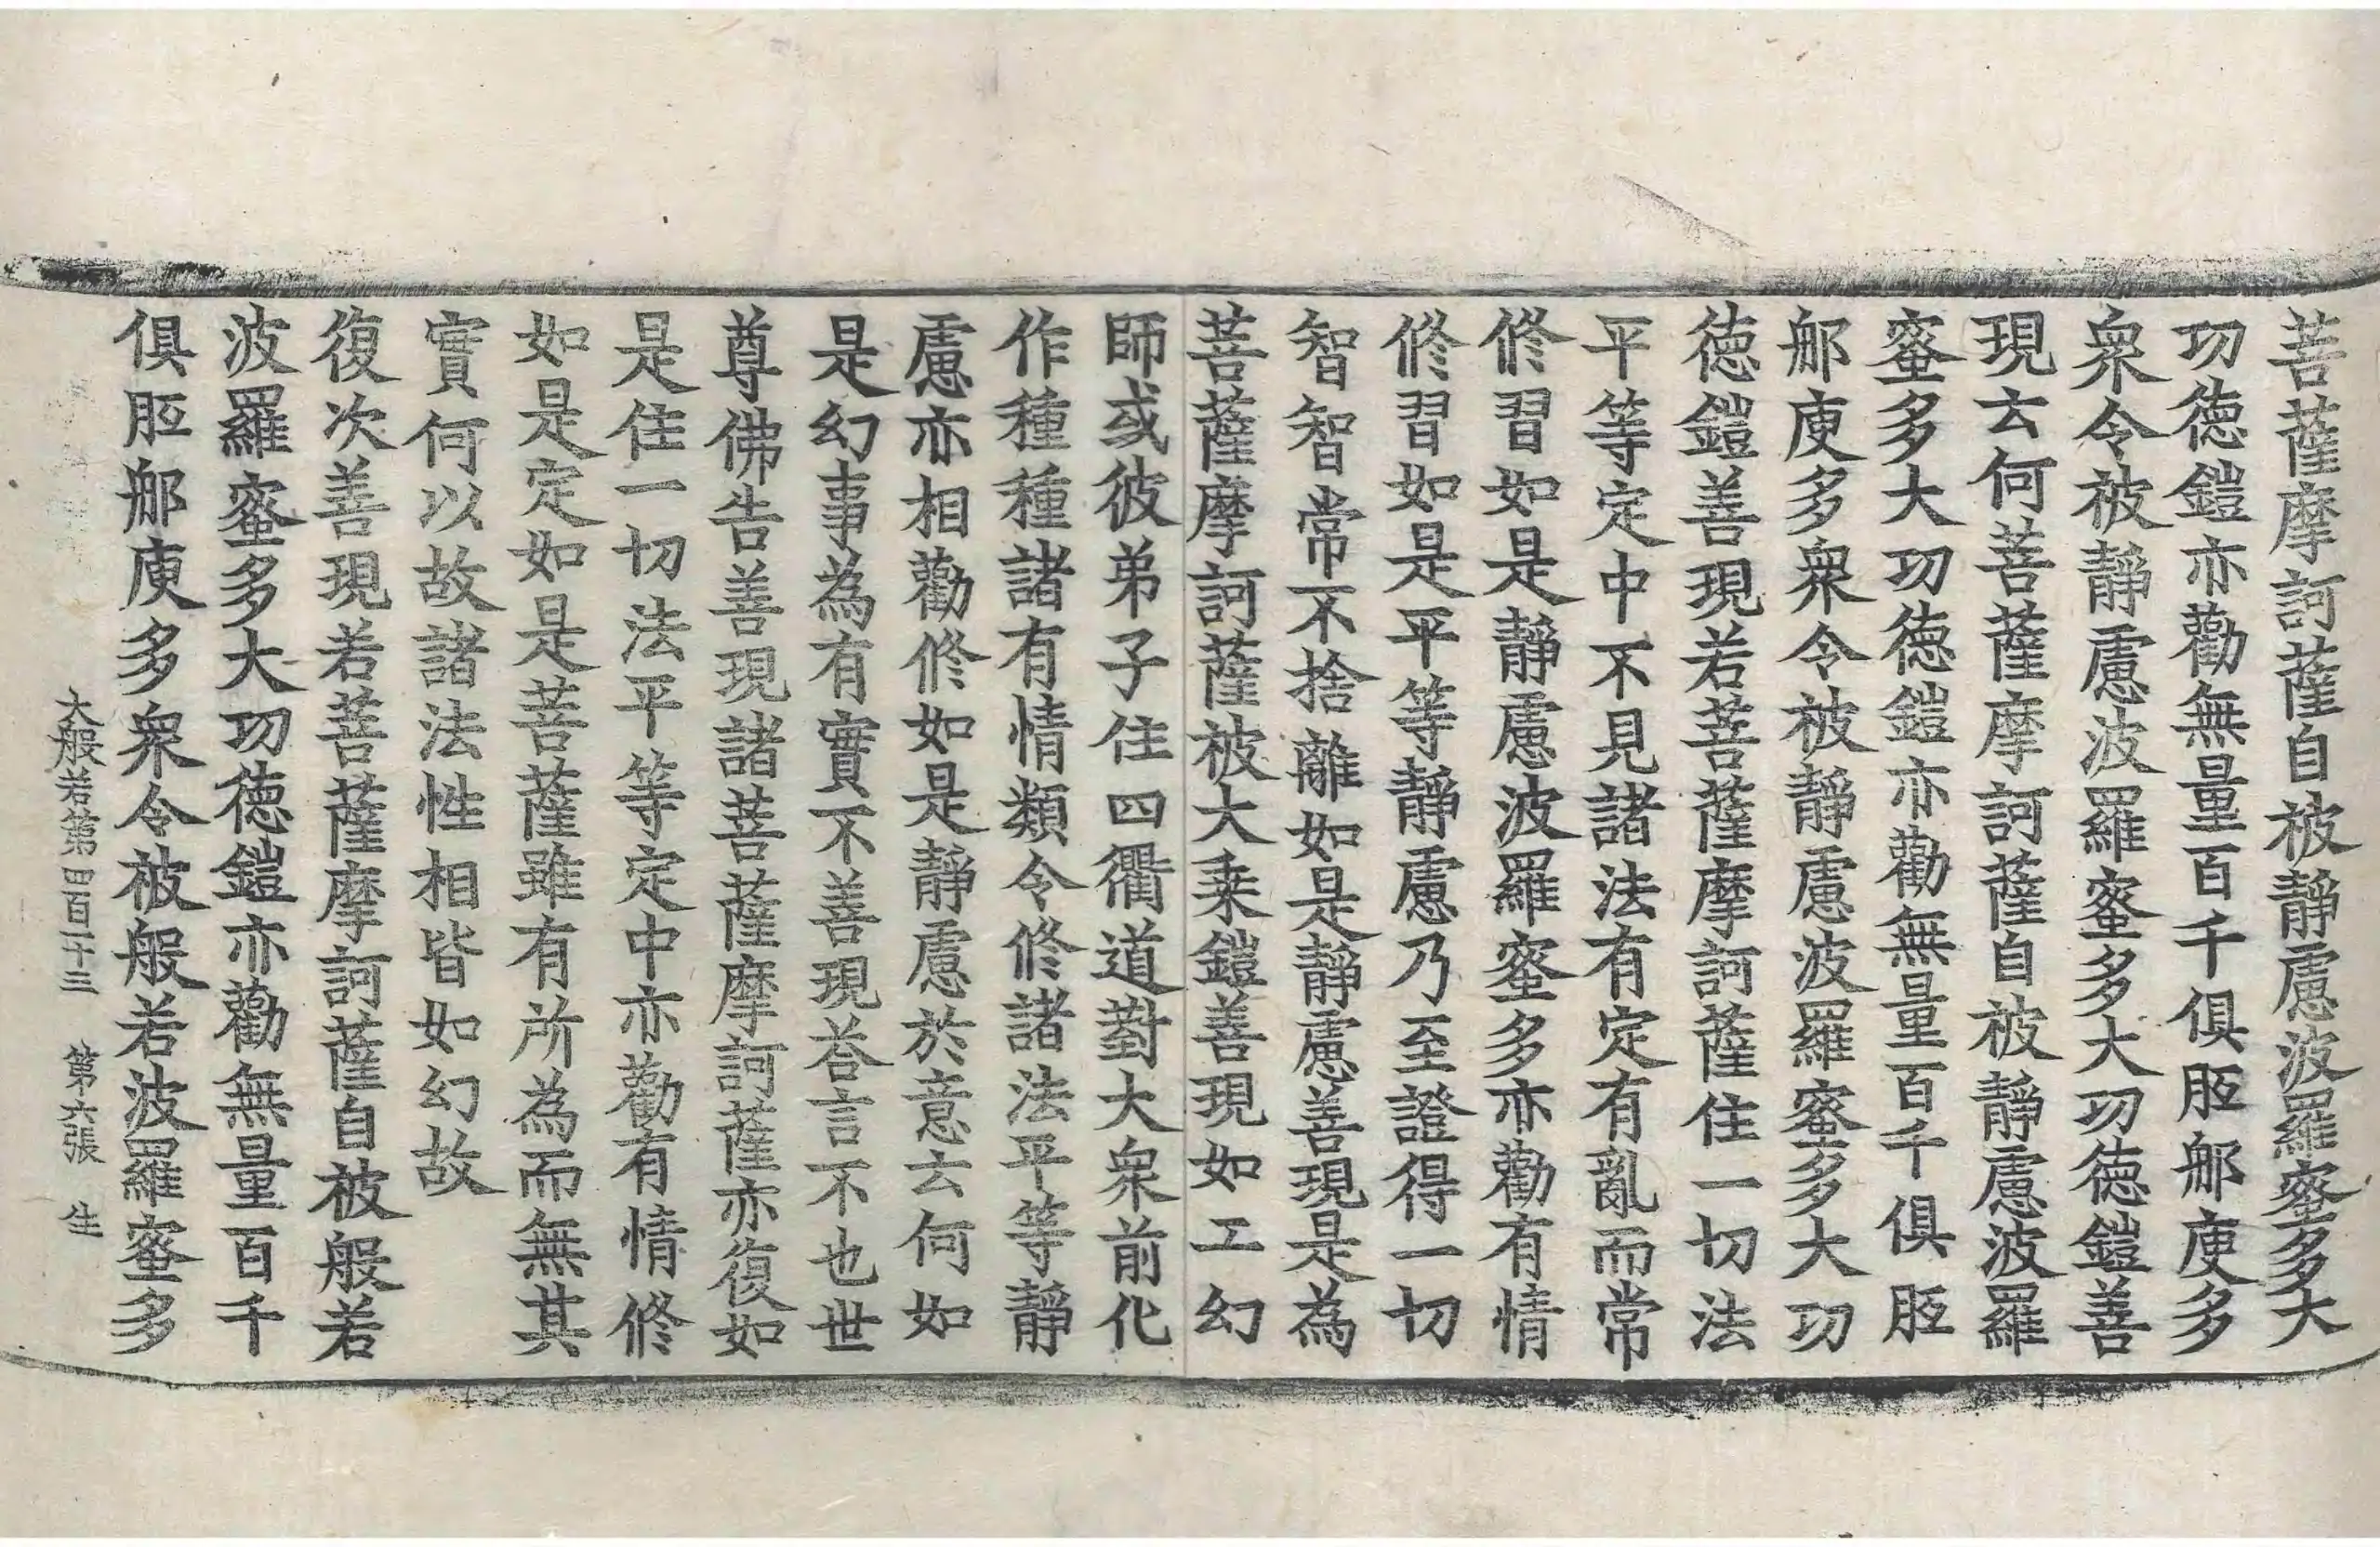 菩薩摩訶薩自被靜慮波羅蜜多大
功德鎧亦勸無量百千俱胝那庾多
衆令被靜慮波羅蜜多大功德鎧善
現云何菩薩摩訶薩自被靜慮波羅
蜜多大功德鎧亦勸無量百千俱胝
那庾多衆令被靜慮波羅蜜多大功
德鎧善現若菩薩摩訶薩住一切法
平等定中不見諸法有定有亂而常
修習如是靜慮波羅蜜多亦勸有情
修習如是平等靜慮乃至證得一切
智智常不捨離如是靜慮善現是為
菩薩摩訶薩被大乗鎧善現如工幻
師或彼弟子住四衢道對大衆前化
作種種諸有情類令修諸法平等靜
慮亦相勸修如是靜慮於意云何如
是幻事為有實不善現荅言不也世
尊佛告善現諸菩薩摩訶薩亦復如
是住一切法平等定中亦勸有情修
如是定如是菩薩雖有所為而無其
實何以故諸法性相皆如幻故
復次善現若菩薩摩訶薩自被般若
波羅蜜多大功德鎧亦勸無量百千
俱胝那庾多衆令被般若波羅蜜多
大般若第四百一十三 第六張 生